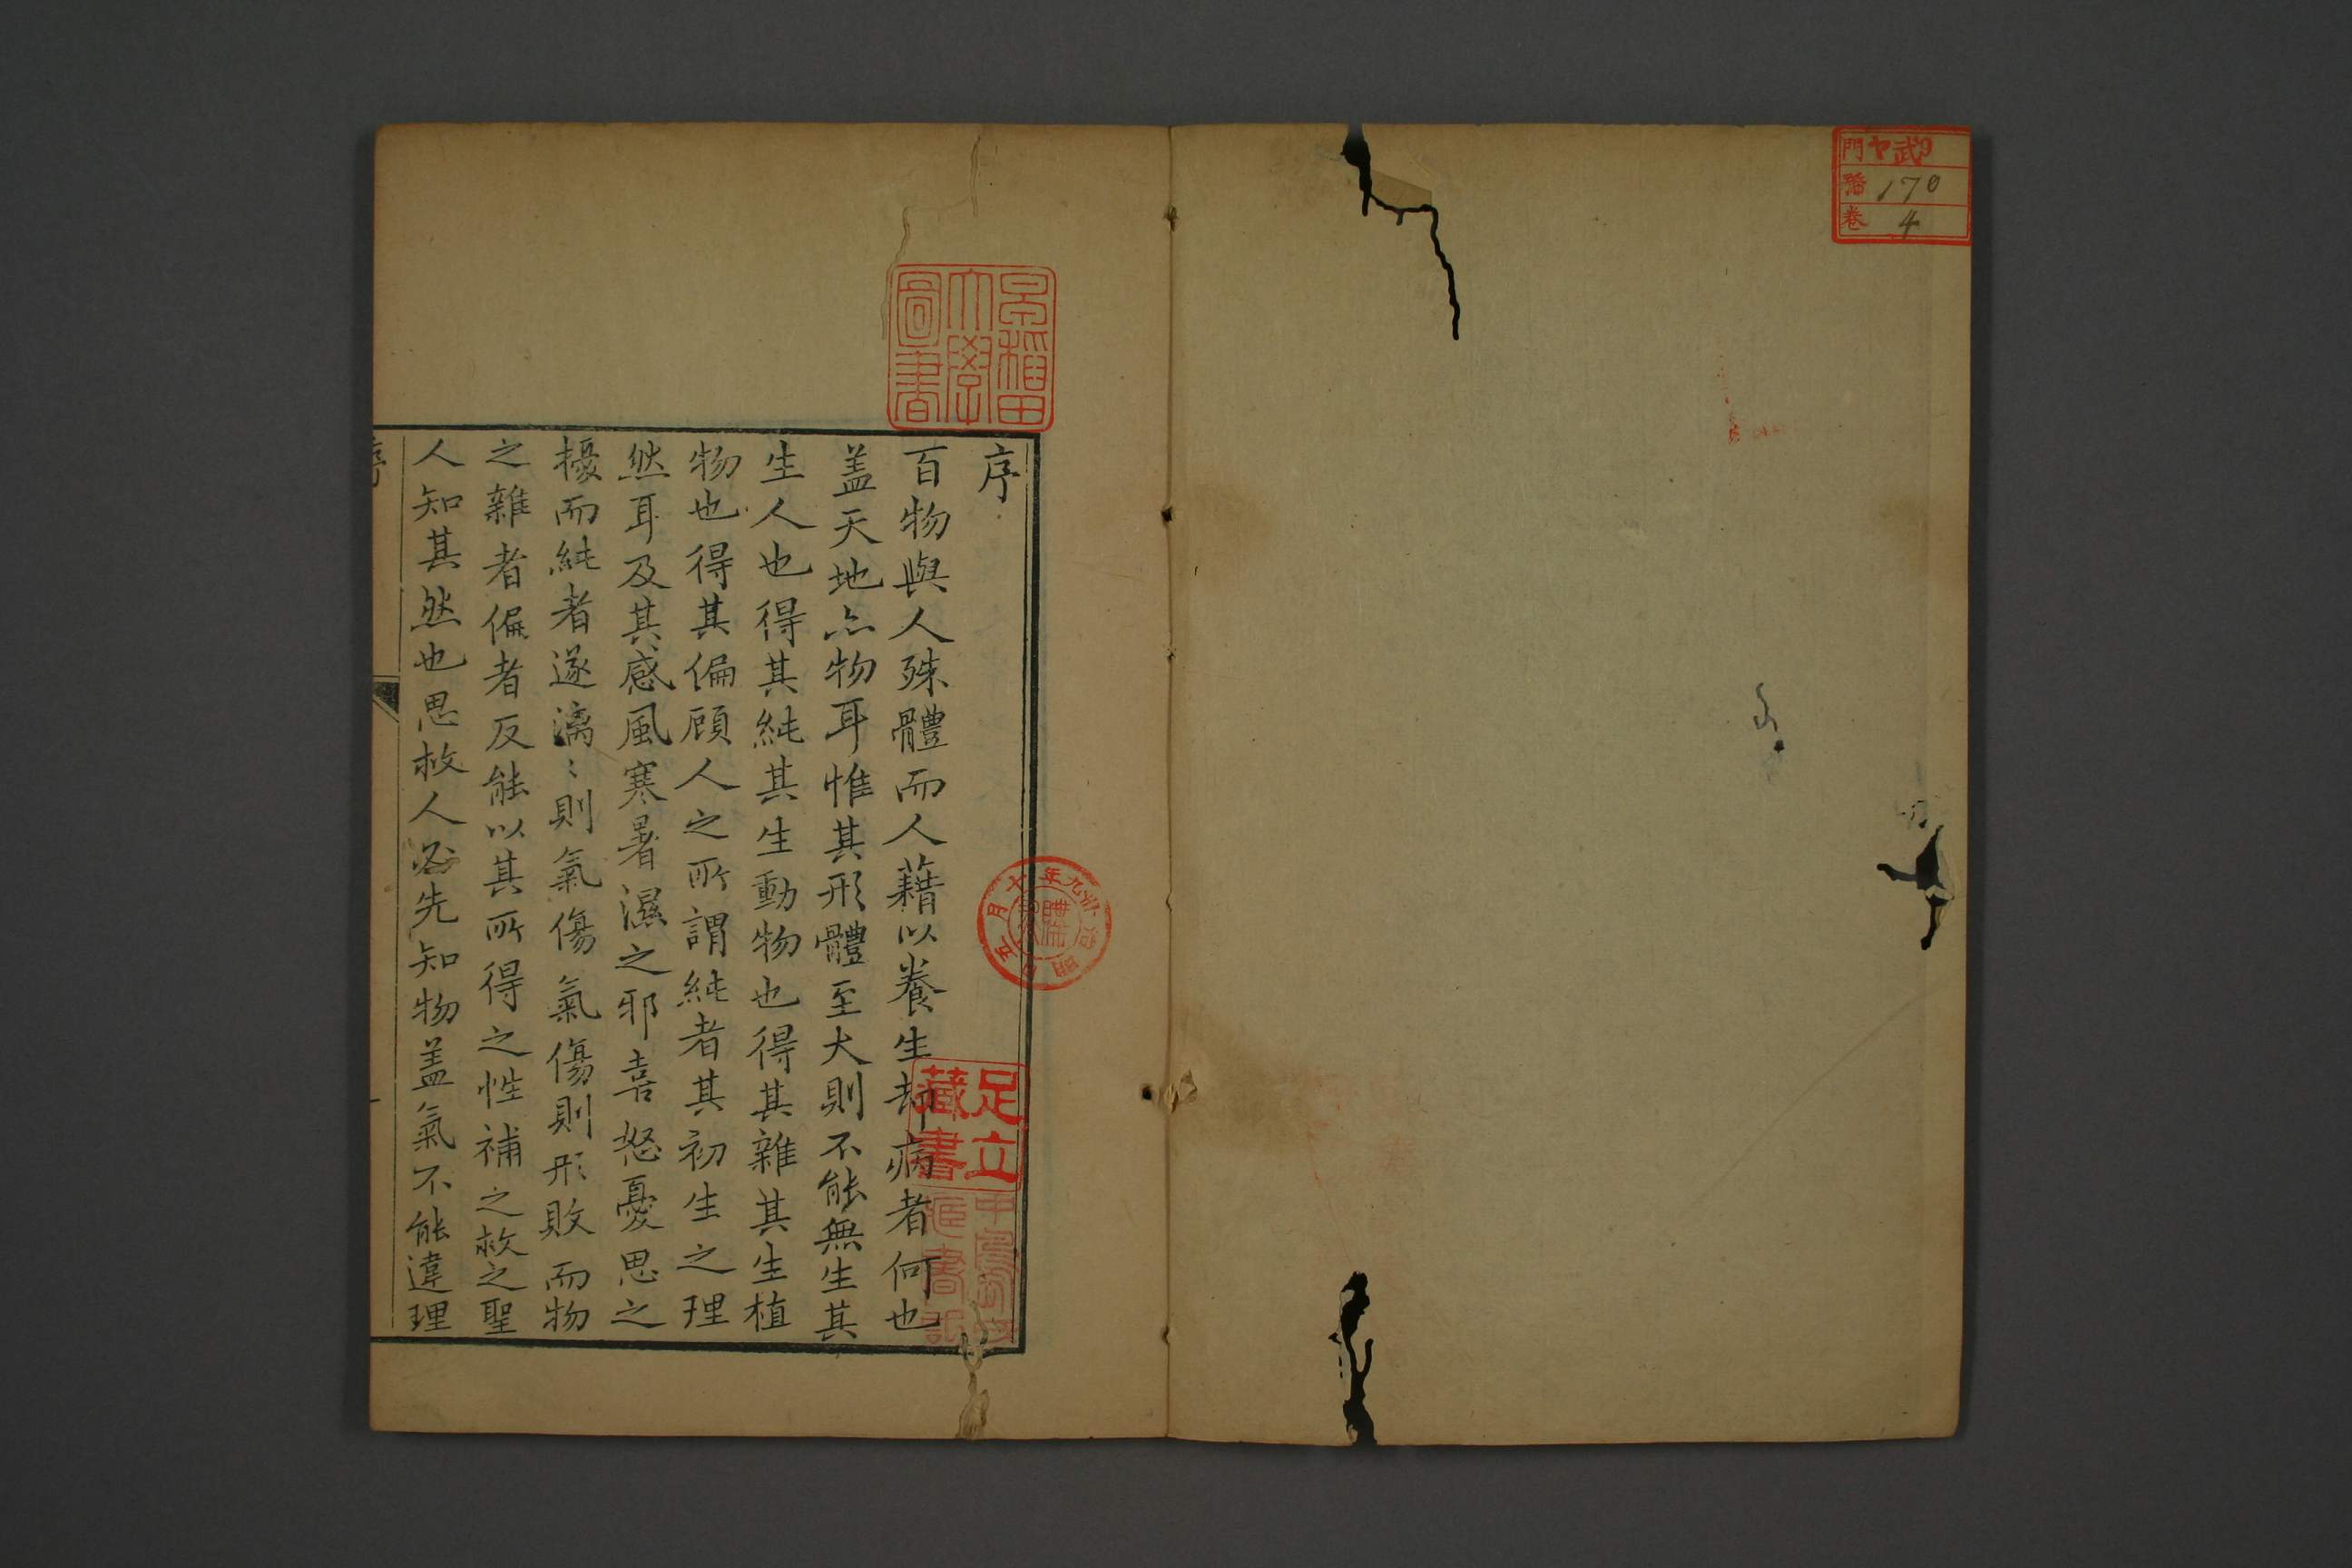 門 ヤ武9
番 170
卷 4
早稻田
大學
圖書
序
百物與人殊體而人藉以養生却病者何也
盖天地亦物耳惟其形體至大則不能無生其
生人也得其純其生動物也得其雜其生植
物也得其偏顧人之所謂純者其初生之理
然耳及其感風寒暑濕之邪喜怒憂思之
擾而純者遂漓〻則氣傷氣傷則形敗而物
之雜者偏者反能以其所得之性補之救之聖
人知其然也思救人必先知物盖氣不能違理
明治卅九年十月五日
購求
足立
藏書
序